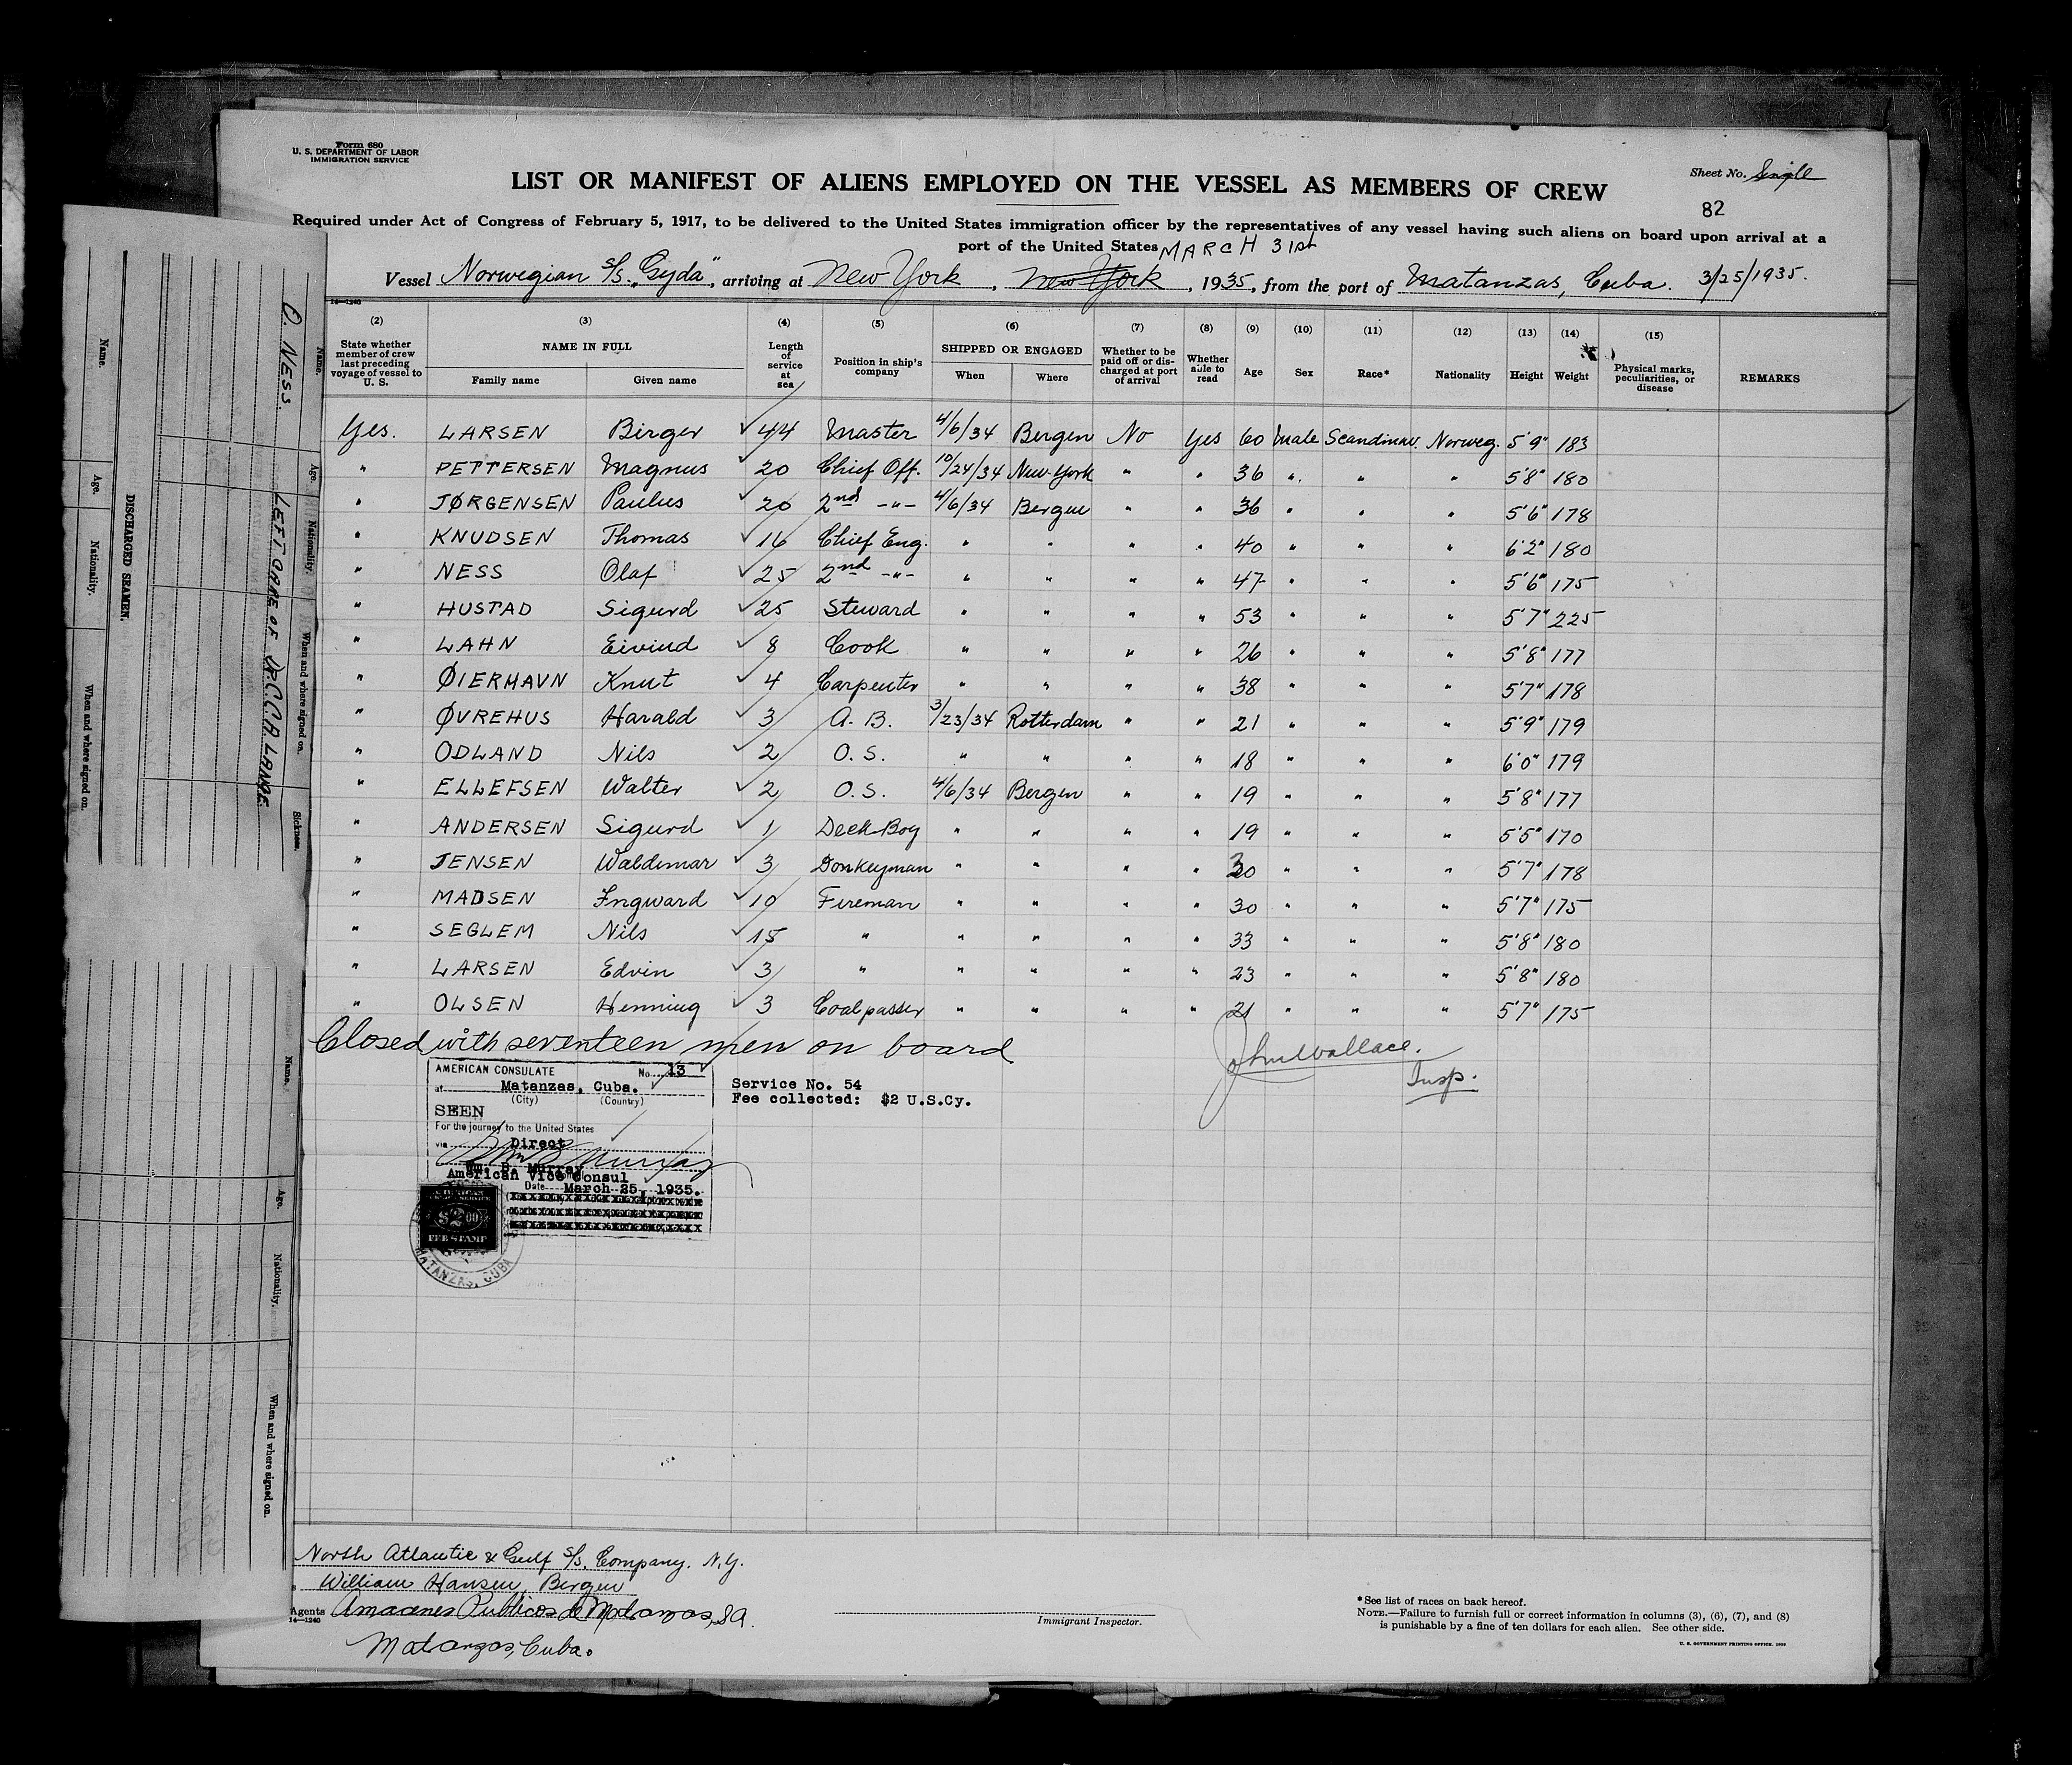 Form 680
U. S. DEPARTMENT OF LABOR
IMMIGRATION SERVICE
Sheet No. Single
82
LIST OR MANIFEST OF ALIENS EMPLOYED ON THE VESSEL AS MEMBERS OF CREW
Required under Act of Congress of February 5, 1917, to be delivered to the United States immigration officer by the representatives of any vessel having such aliens on board upon arrival at a
port of the United States MARCH 31st
Vessel Norwegian S/S. „Gyda", arriving at New York, New York, 1935, from the port of Matanzas, Cuba. 3/25/1935.
14—1240
(2) (3) (4) (5) (6) (7) (8) (9) (10) (11) (12) (13) (14) (15)
State whether member of crew last preceding voyage of vessel to U. S. NAME IN FULL Family name Given name Length of service at sea Position in ship's company SHIPPED OR ENGAGED When Where Whether to be paid off or discharged at port of arrival Whether able to read Age Sex Race* Nationality Height Weight Physical marks, peculiarities, or disease REMARKS
Yes. LARSEN Birger ✓ 44 Master 4/6/34 Bergen No Yes 60 Male Scandinav. Norweg. 5'9" 183
" PETTERSEN Magnus ✓ 20 Chief Off. 10/24/34 New-York " " 36 " " " 5'8" 180
" JØRGENSEN Paulus ✓ 20 2nd -"- 4/6/34 Bergen " " 36 " " " 5'6" 178
" KNUDSEN Thomas ✓ 16 Chief Eng. " " " " 40 " " " 6'2" 180
" NESS Olaf ✓ 25 2nd -"- " " " " 47 " " " 5'6" 175
" HUSTAD Sigurd ✓ 25 Steward " " " " 53 " " " 5'7" 225
" LAHN Eivind ✓ 8 Cook " " " " 26 " " " 5'8" 177
" ØIERHAVN Knut ✓ 4 Carpenter " " " " 38 " " " 5'7" 178
" ØVREHUS Harald ✓ 3 A. B. 3/23/34 Rotterdam " " 21 " " " 5'9" 179
" ODLAND Nils ✓ 2 O. S. " " " " 18 " " " 6'0" 179
" ELLEFSEN Walter ✓ 2 O. S. 4/6/34 Bergen " " 19 " " " 5'8" 177
" ANDERSEN Sigurd ✓ 1 Deck Boy " " " " 19 " " " 5'5" 170
" JENSEN Waldemar ✓ 3 Donkeyman " " " " 30 " " " 5'7" 178
" MADSEN Ingward ✓ 10 Fireman " " " " 30 " " " 5'7" 175
" SEGLEM Nils ✓ 15 " " " " " 33 " " " 5'8" 180
" LARSEN Edvin ✓ 3 " " " " " 23 " " " 5'8" 180
" OLSEN Henning ✓ 3 Coalpasser " " " " 21 " " " 5'7" 175
Closed with seventeen men on board
John Wallace.
Insp.
AMERICAN CONSULATE No. 13
at Matanzas, Cuba.
(City) (Country)
SEEN
For the journey to the United States
via Direct
Wm. B. Murray
American Vice Consul
Date March 25, 1935.
Service No. 54
Fee collected: $2 U.S.Cy.
$2.00
FEE STAMP
MATANZAS, CUBA
North Atlantic & Gulf S/S. Company. N.Y.
William Hansen, Bergen
Agents Amacenes Publicos de Matanzas, SA.
14—1240
Matanzas, Cuba.
Immigrant Inspector.
*See list of races on back hereof.
NOTE.—Failure to furnish full or correct information in columns (3), (6), (7), and (8)
is punishable by a fine of ten dollars for each alien. See other side.
U. S. GOVERNMENT PRINTING OFFICE
DISCHARGED SEAMEN.
Name. Age. Nationality. When and where signed on.
Name. Age. Nationality. When and where signed on. Sickness.
O. NESS. LEFT CARE OF DR. C.C.A. LANGE.
Name. Age. Nationality. When and where signed on.